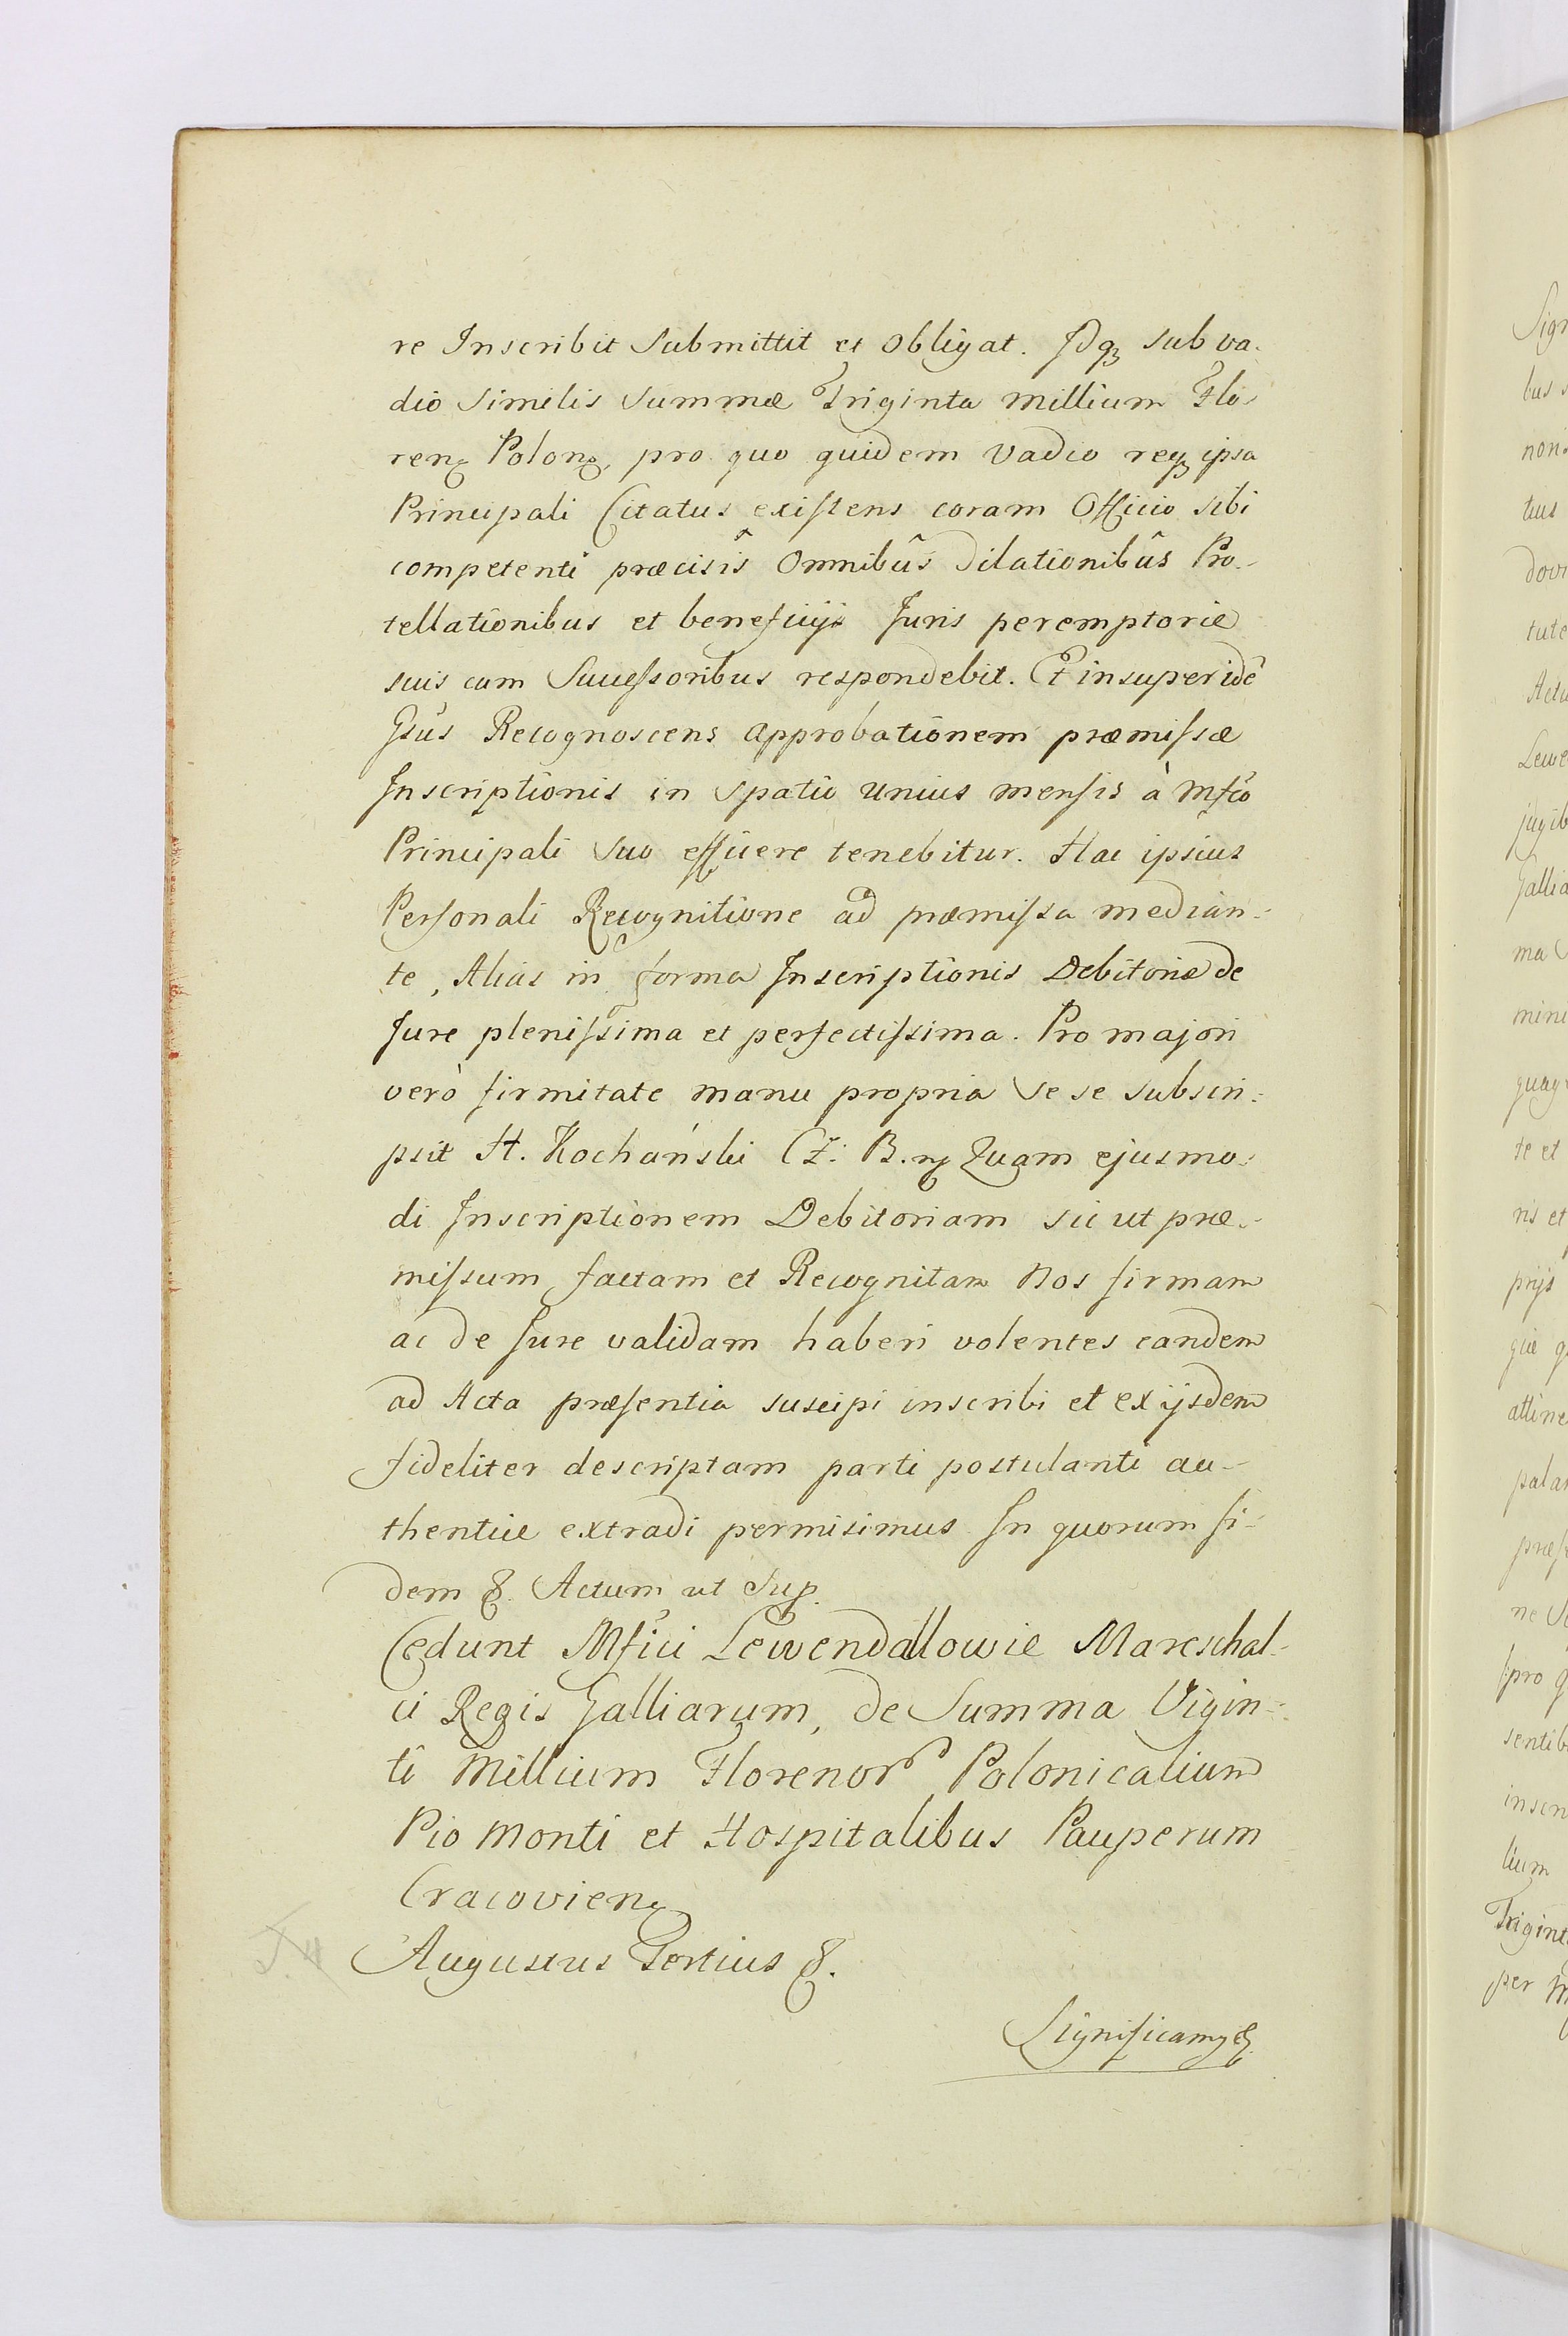 re Inscribit Submittit et obligat. Idq3 sub va-
dio similis summæ Triginta millium Flo-
ren Polon, pro quo quidem vadio req3 ipsa
Principali Citatus existens coram Officio sibi
competenti præcisîs omnibûs dilationibûs Pro-
tellationibus et beneficijs Juris peremptorie
suis cum Successoribus respondebit. Et insuper idê
Gsus Recognoscens approbationem præmissæ
Inscriptionis in spatio unius mensis à Mfco
Principali suo efficere tenebitur. Hac ipsius
Personali Recognitione ad præmissa median-
te, Alias in forma Inscriptionis Debitoriæ de
Jure plenissima et perfectissima. Pro majori
verò firmitate manu propria se se subscri-
psit H. Kochański CZ. B. Quam ejusmo-
di Inscriptionem Debitoriam sic ut præ-
missum factam et Recognitam Nos firmam
ac de Jure validam haberi volentes eandem
ad Acta præsentia suscipi inscribi et ex ijsdem
fideliter descriptam parti postulanti au-
thentice extradi permisimus In quorum fi-
dem &. Actum ut Sup.
Cedunt Mfici Lewendallowie Mareschal-
ci Regis Galliarum, de Summa Vigin-
ti Millium Florenor Polonicalium
Pio Monti et Hospitalibus Pauperum
Cracovien
Augustus Tertius &.
Significamq &